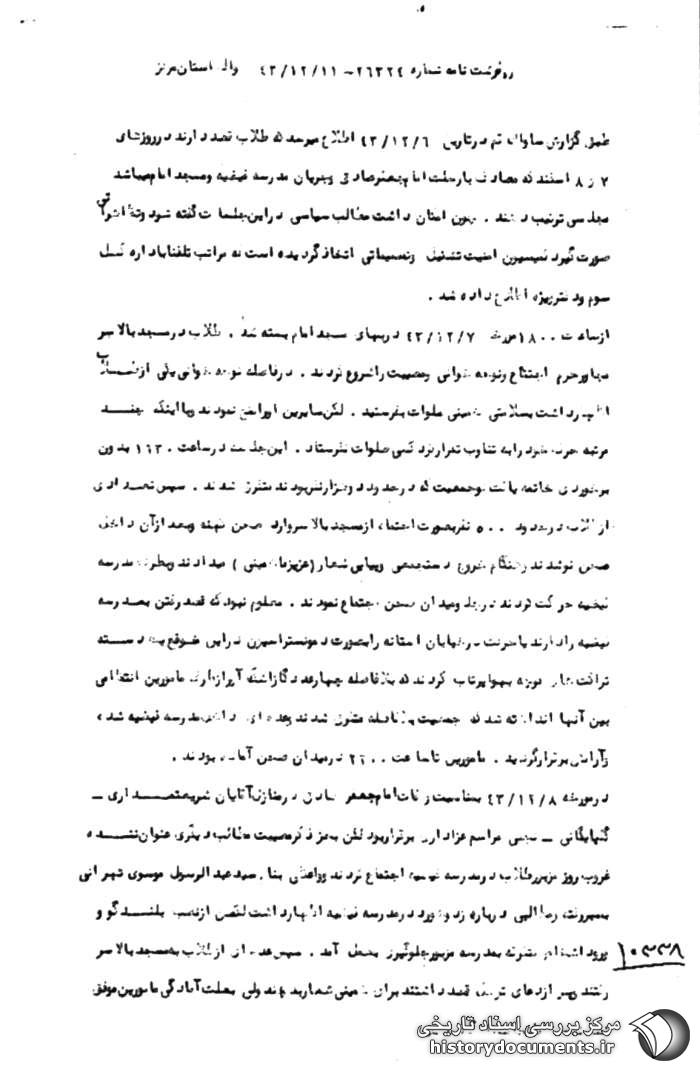 رونوشت نامه شماره ۲۶۳۲۴ – ۴۳/۱۲/۱۱ استان مرکز
طبق گزارش ساواک قم در تاریخ ۴۳/۱۲/۶ اطلاع میرسد که طلاب قصد دارند در روزهای
۷ و ۸ اسفند که مصادف با رحلت امام جعفر صادق و جریان مدرسه فیضیه و مسجد امام میباشد
مجلسی ترتیب دهند . چون امکان داشت مطالب سیاسی در این جلسات گفته شود و تظاهراتی
صورت گیرد کمیسیون امنیت تشکیل و تصمیماتی اتخاذ گردیده است که مراتب تلفنا باداره کل
سوم و دفتر ویژه اطلاع داده شد .
از ساعت ۱۸۰۰ مورخه ۴۳/۱۲/۷ دربهای مسجد امام بسته شد . طلاب در مسجد بالاسر
مجاور حرم اجتماع و نوحه خوانی و مصیبت را شروع کردند . در فاصله نوحه خوانی یکی از طلاب
اظهار داشت بسلامتی خمینی صلوات بفرستید . لکن سایرین او را منع نمودند و با اینکه چند
مرتبه حرف خود را به تناوب تکرار کرد کسی صلوات نفرستاد . این جلسه در ساعت بدون
برخوردی خاتمه یافت و جمعیت که در حدود دو هزار نفر بودند متفرق شدند . سپس تعدادی
از طلاب در حدود ۵۰۰ نفر بصورت اجتماع از مسجد بالاسر وارد صحن کهنه و بعد از آن داخل
صحن نو شدند و هنگام خروج دستجمعی و پیاپی شعار (عزیزما خمینی ) میدادند و بطرف مدرسه
فیضیه حرکت کردند در جلو میدان صحن اجتماع نمودند . معلوم نبود که قصد رفتن بمدرسه
فیضیه را دارند یا حرکت در خیابان آستانه را بصورت دمونستراسیون در این موقع یک دسته
تراکت هوا پرتاب کردند که بلافاصله چهار عدد گاز اشک آور از طرف مامورین انتظامی
بین آنها انداخته شد که جمعیت بلافاصله متفرق شدند و عده ای داخل مدرسه فیضیه شد ،
و آرامش برقرار گردید . مامورین تا ساعت در میدان صحن آماده بودند .
در مورخه ۴۳/۱۲/۸ بمناسبت وفات امام جعفر صادق در منازل آقایان شریعتمداری –
گلپایگانی – مراسم عزاداری برقرار بود لکن بجز ذکر مصیبت مطالب دیگری عنوان نشده
غروب روز مزبور طلاب در مدرسه فیضیه اجتماع کردند و واعظی بنام سید عبدالرسول موسوی تهرانی
بمنبر رفته و مطالبی درباره زد و خورد در مدرسه فیضیه اظهار داشت لکن از نصب بلندگو و
ورود اشخاص متفرقه بمدرسه مزبور جلوگیری بعمل آمد . سپس عده ای از طلاب به مسجد بالاسر
رفتند و پس از دعای توسل قصد داشتند برای خمینی شعار بدهند ولی بعلت آمادگی مامورین موفق
۱۰۳۳۸
مرکز بررسی اسناد تاریخی
historydocuments.ir